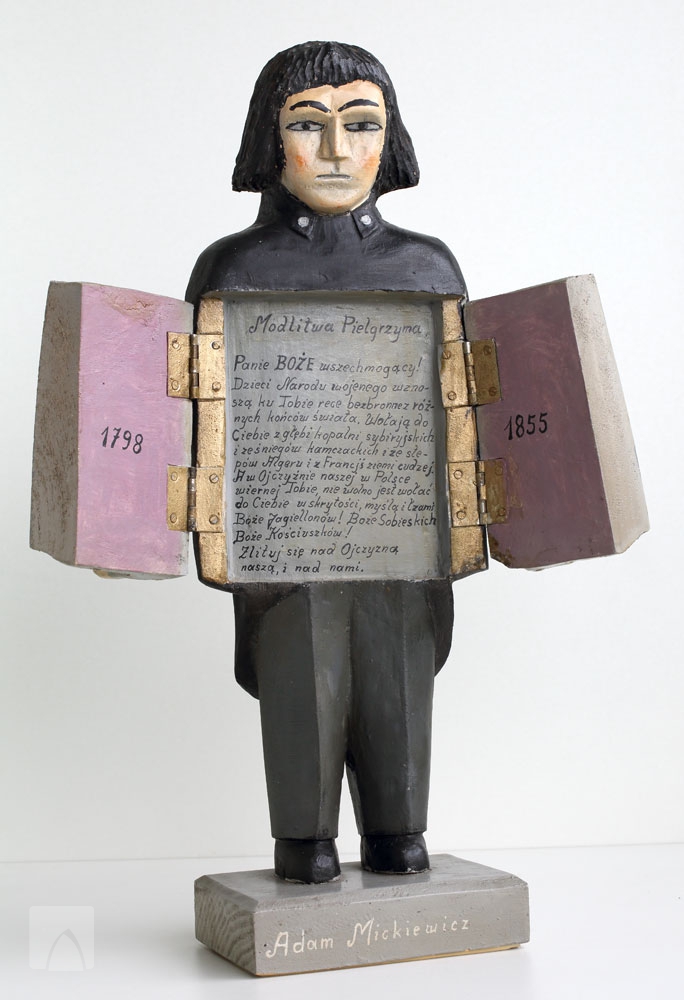 Modlitwa Pielgrzyma
Panie BOŻE wszechmogący!
Dzieci Narodu wojenego wzno-
szą ku Tobie ręce bezbronnez róż-
nych końców świata. Wołają do
Ciebie z głębi kopalni sybiryjskich
i ześniegów kamczackich i ze ste-
pów Algeru i z Francji ziemi cudzej.
A w Ojczyźnie naszej w Polsce
wiernej Tobie, nie wolno jest wołać
do Ciebie w skrytości, myślą i łzami
Boże Jagiellonów! Boże Sobieskich
Boże Kościuszków!
Zlituj się nad Ojczyzną
naszą, i nad nami.
1798
1855
Adam Mickiewicz